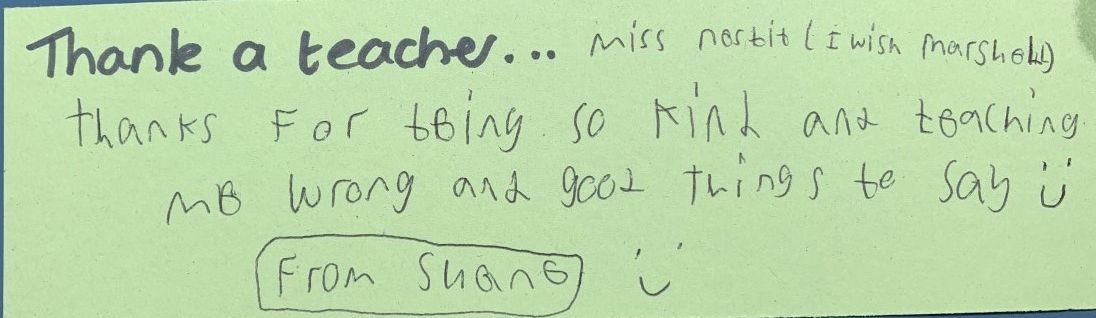 Thank a teacher... miss nesbit (I wish marshall)
thanks For being so kind and teaching
me wrong and good things to say ü
From Shane ü